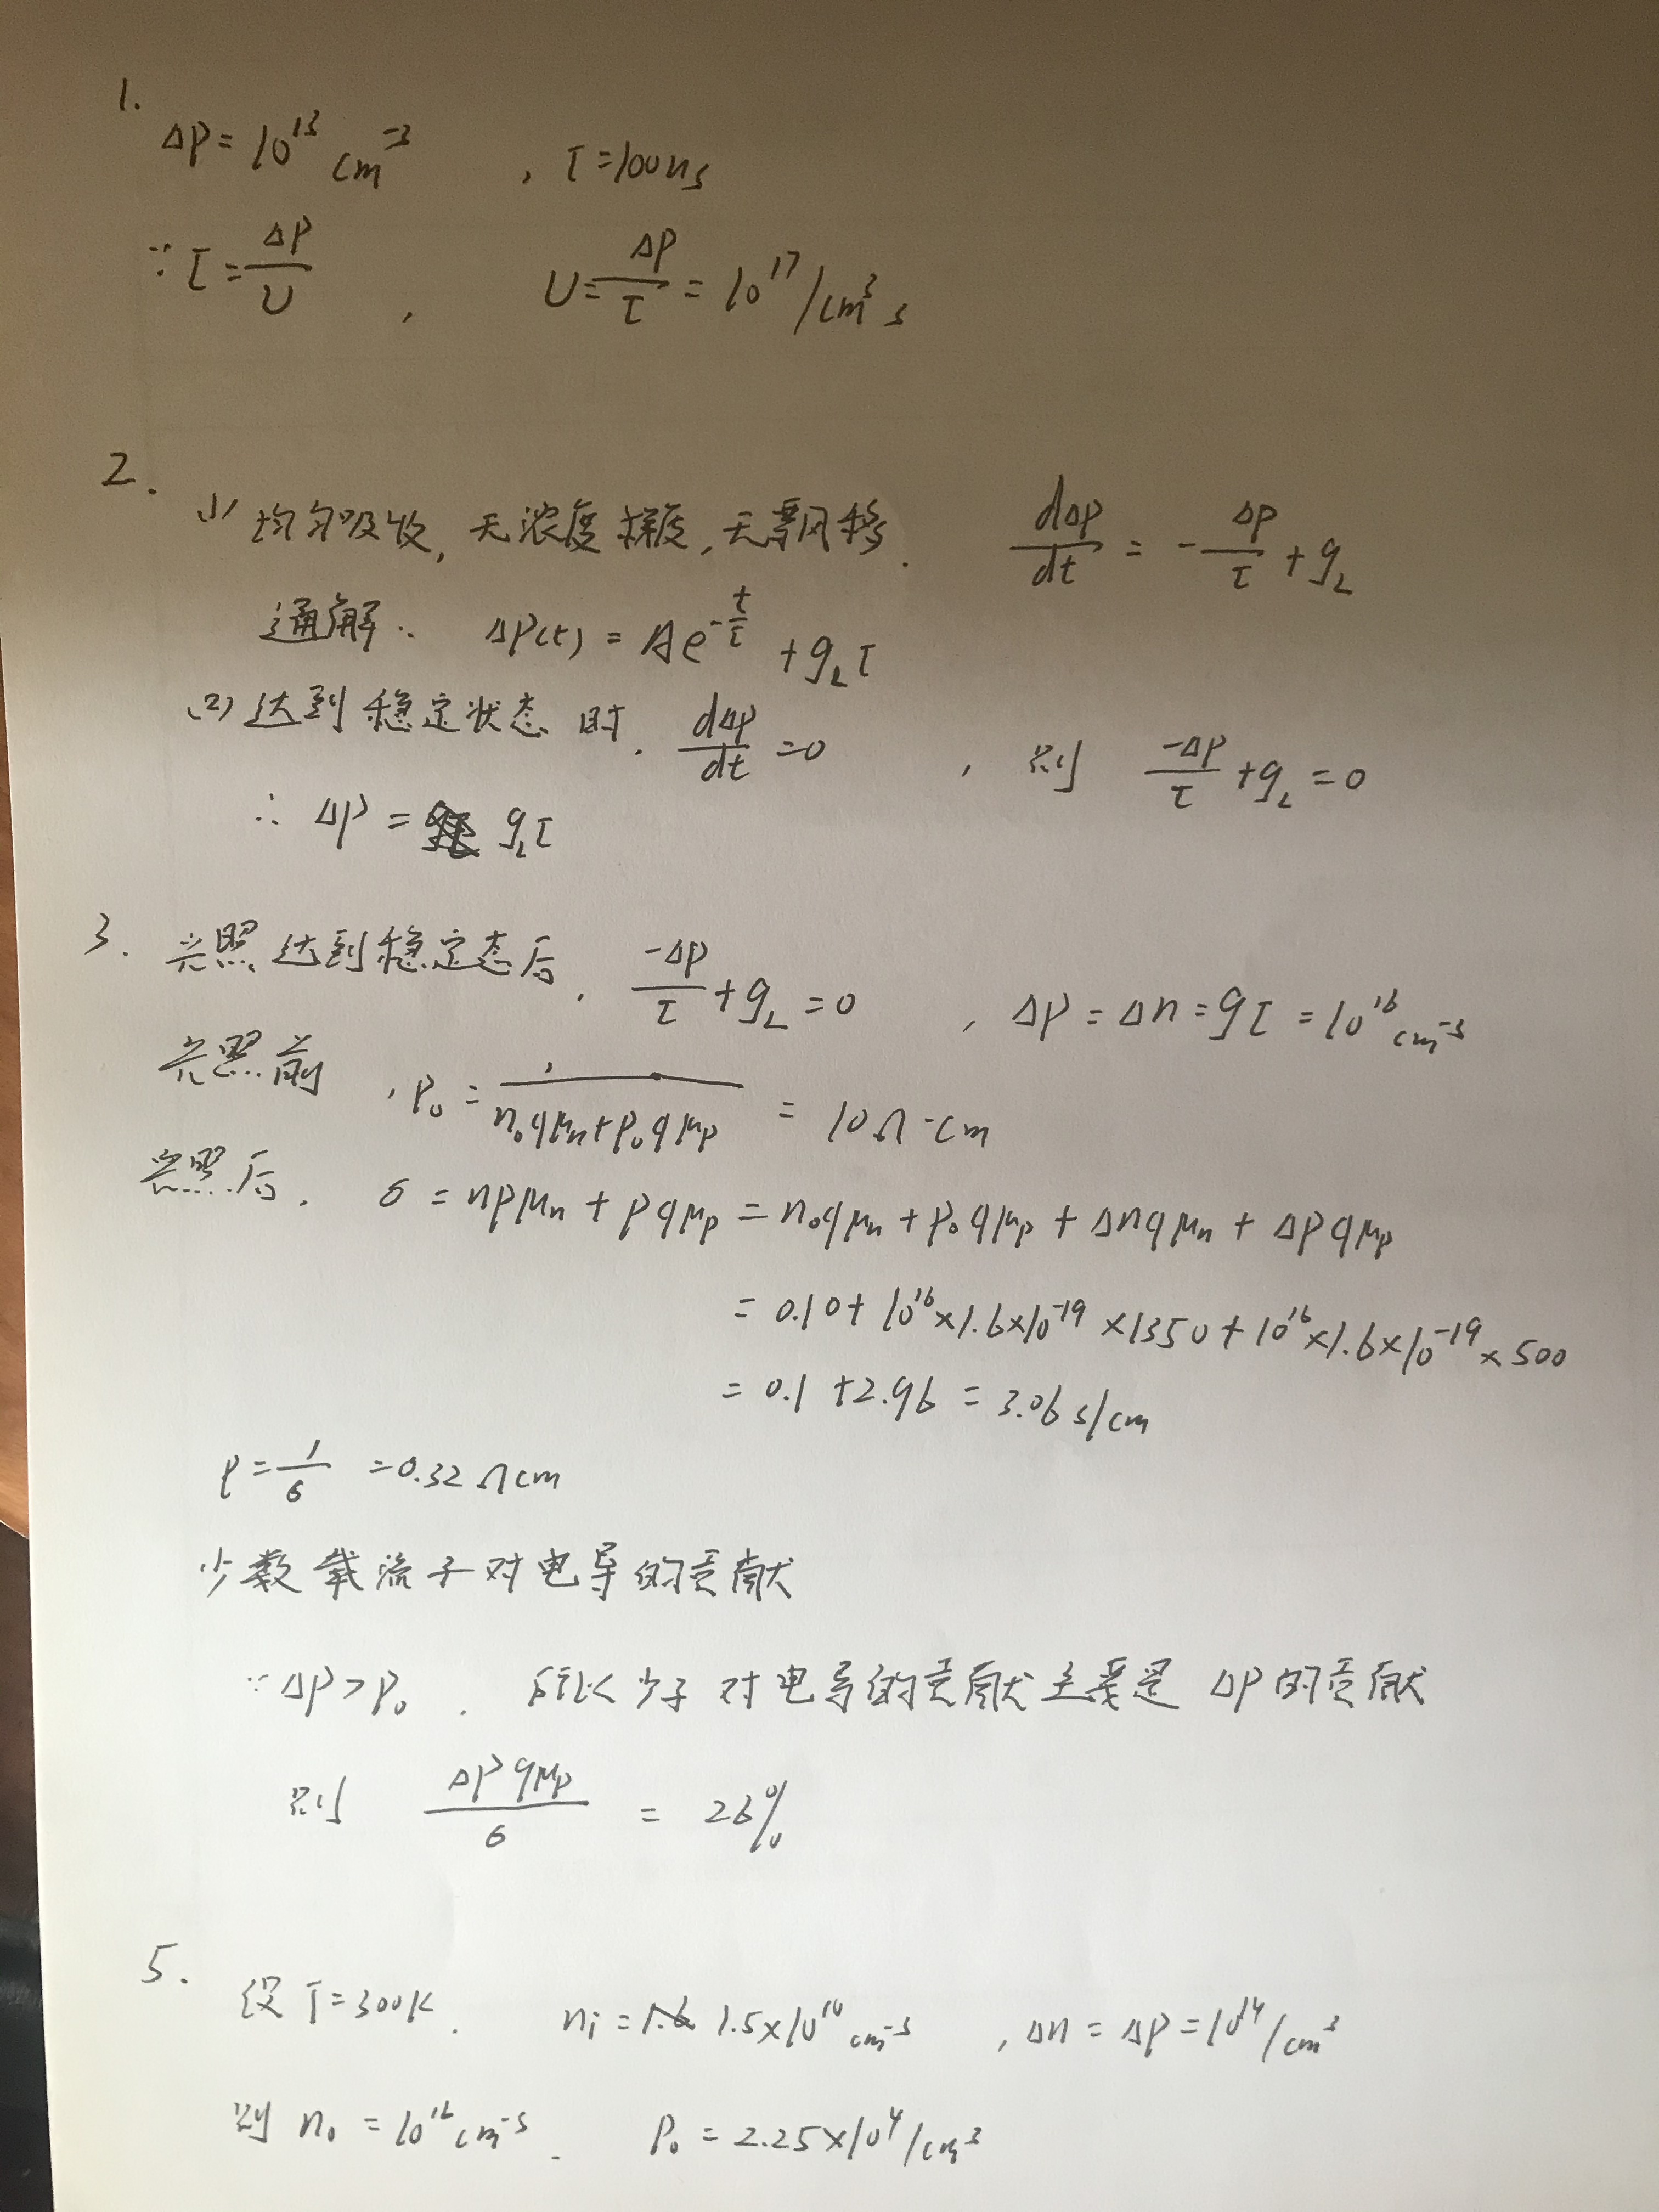 1.
Δp = 10¹³ cm⁻³ , τ = 100ns
∵ τ = Δp/U , U = Δp/τ = 10¹⁷/cm³s
2.
(1) 均匀吸收, 无浓度梯度, 无飘移. dΔp/dt = -Δp/τ + g_L
通解: Δp(t) = Ae^(-t/τ) + g_Lτ
(2) 达到稳定状态时. dΔp/dt = 0 , 则 -Δp/τ + g_L = 0
∴ Δp = g_Lτ
3. 光照达到稳定态后. -Δp/τ + g_L = 0 , Δp = Δn = gτ = 10¹⁶ cm⁻³
光照前 , ρ₀ = 1/(n₀qμn + p₀qμp) = 10Ω·cm
光照后. σ = npμn + pqμp = n₀qμn + p₀qμp + Δnqμn + Δpqμp
= 0.10 + 10¹⁶×1.6×10⁻¹⁹×1350 + 10¹⁶×1.6×10⁻¹⁹×500
= 0.1 + 2.96 = 3.06 s/cm
ρ = 1/σ = 0.32 Ωcm
少数载流子对电导的贡献
∵ Δp > p₀ . 所以少子对电导的贡献主要是 Δp 的贡献
则 Δpqμp/σ = 26%
5. 设 T = 300K. ni = 1.5×10¹⁰ cm⁻³ , Δn = Δp = 10¹⁴/cm³
则 n₀ = 10¹⁶ cm⁻³. p₀ = 2.25×10⁴/cm³